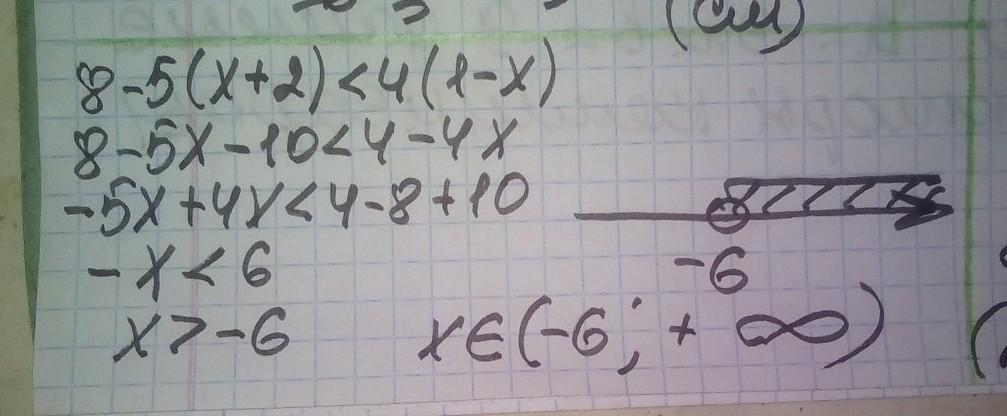 (см)
8-5(x+2)<4(1-x)
8-5x-10<4-4x
-5x+4x<4-8+10
-x<6
-6
x>-6 x∈(-6; +∞)